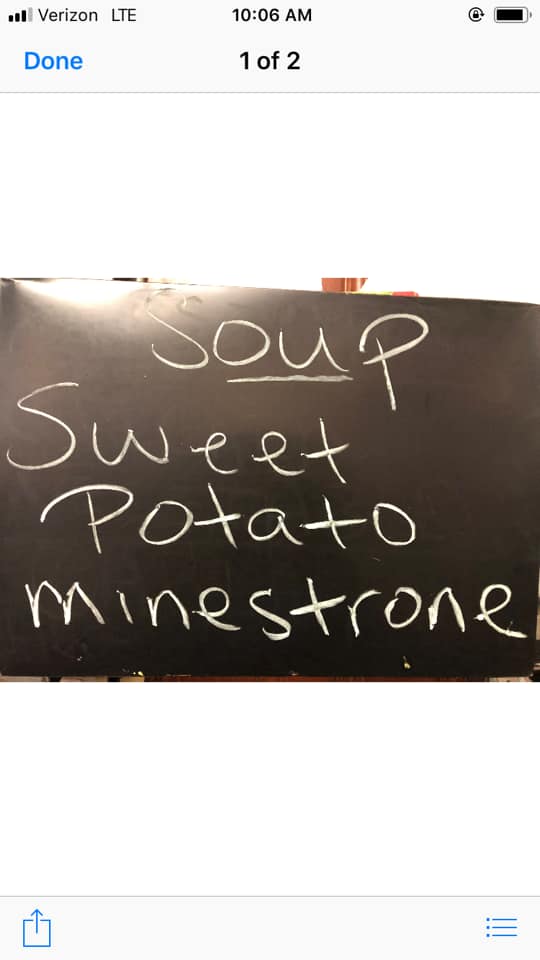 Verizon LTE 10:06 AM
Done 1 of 2
Soup
Sweet
Potato
minestrone